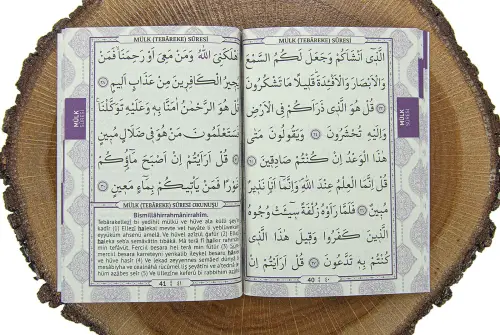 MÜLK (TEBÂREKE) SÛRESİ
الَّذ۪ٓي اَنْشَاَكُمْ وَجَعَلَ لَكُمُ السَّمْعَ
وَالْاَبْصَارَ وَالْاَفْـِٔدَةَ قَل۪يلًا مَا تَشْكُرُونَ
قُلْ هُوَ الَّذ۪ي ذَرَاَكُمْ فِي الْاَرْضِ
وَاِلَيْهِ تُحْشَرُونَ وَيَقُولُونَ مَتٰى
هٰذَا الْوَعْدُ اِنْ كُنْتُمْ صَادِق۪ينَ
قُلْ اِنَّمَا الْعِلْمُ عِنْدَ اللّٰهِ وَاِنَّمَٓا اَنَا۬ نَذ۪يرٌ
مُب۪ينٌ فَلَمَّا رَاَوْهُ زُلْفَةً س۪ٓيـَٔتْ وُجُوهُ
الَّذ۪ينَ كَفَرُوا وَق۪يلَ هٰذَا الَّذ۪ي
كُنْتُمْ بِه۪ تَدَّعُونَ قُلْ اَرَاَيْتُمْ اِنْ
MÜLK
SÛRESİ
40
٤٠
MÜLK (TEBÂREKE) SÛRESİ
اَهْلَكَنِيَ اللّٰهُ وَمَنْ مَعِيَ اَوْ رَحِمَنَا فَمَنْ
يُج۪يرُ الْكَافِر۪ينَ مِنْ عَذَابٍ اَل۪يمٍ
قُلْ هُوَ الرَّحْمٰنُ اٰمَنَّا بِه۪ وَعَلَيْهِ تَوَكَّلْنَا
فَسَتَعْلَمُونَ مَنْ هُوَ ف۪ي ضَلَالٍ مُب۪ينٍ
قُلْ اَرَاَيْتُمْ اِنْ اَصْبَحَ مَٓاؤُ۬كُمْ
غَوْرًا فَمَنْ يَأْت۪يكُمْ بِمَٓاءٍ مَع۪ينٍ
MÜLK (TEBÂREKE) SÛRESİ OKUNUŞU
Bismillâhirrahmânirrahîm.
Tebârakellezî bi yedihil mülkü ve hüve alâ külli şey'in
MÜLK
SÛRESİ
41
٤١